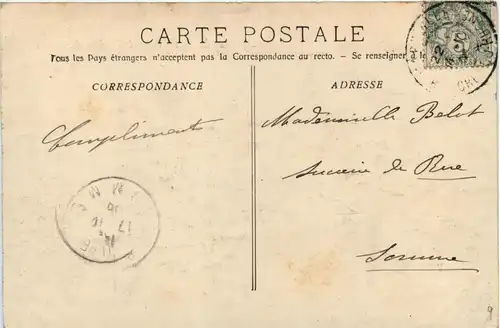 CARTE POSTALE
Tous les Pays étrangers n'acceptent pas la Correspondance au recto. — Se renseigner à la
CORRESPONDANCE
ADRESSE
Compliments
Mademoiselle Belot
Sucrerie de Rue
Somme